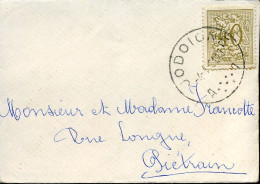 40
JODOIGNE
A
Monsieur et Madame Francotte
Rue Longue,
Piétrain